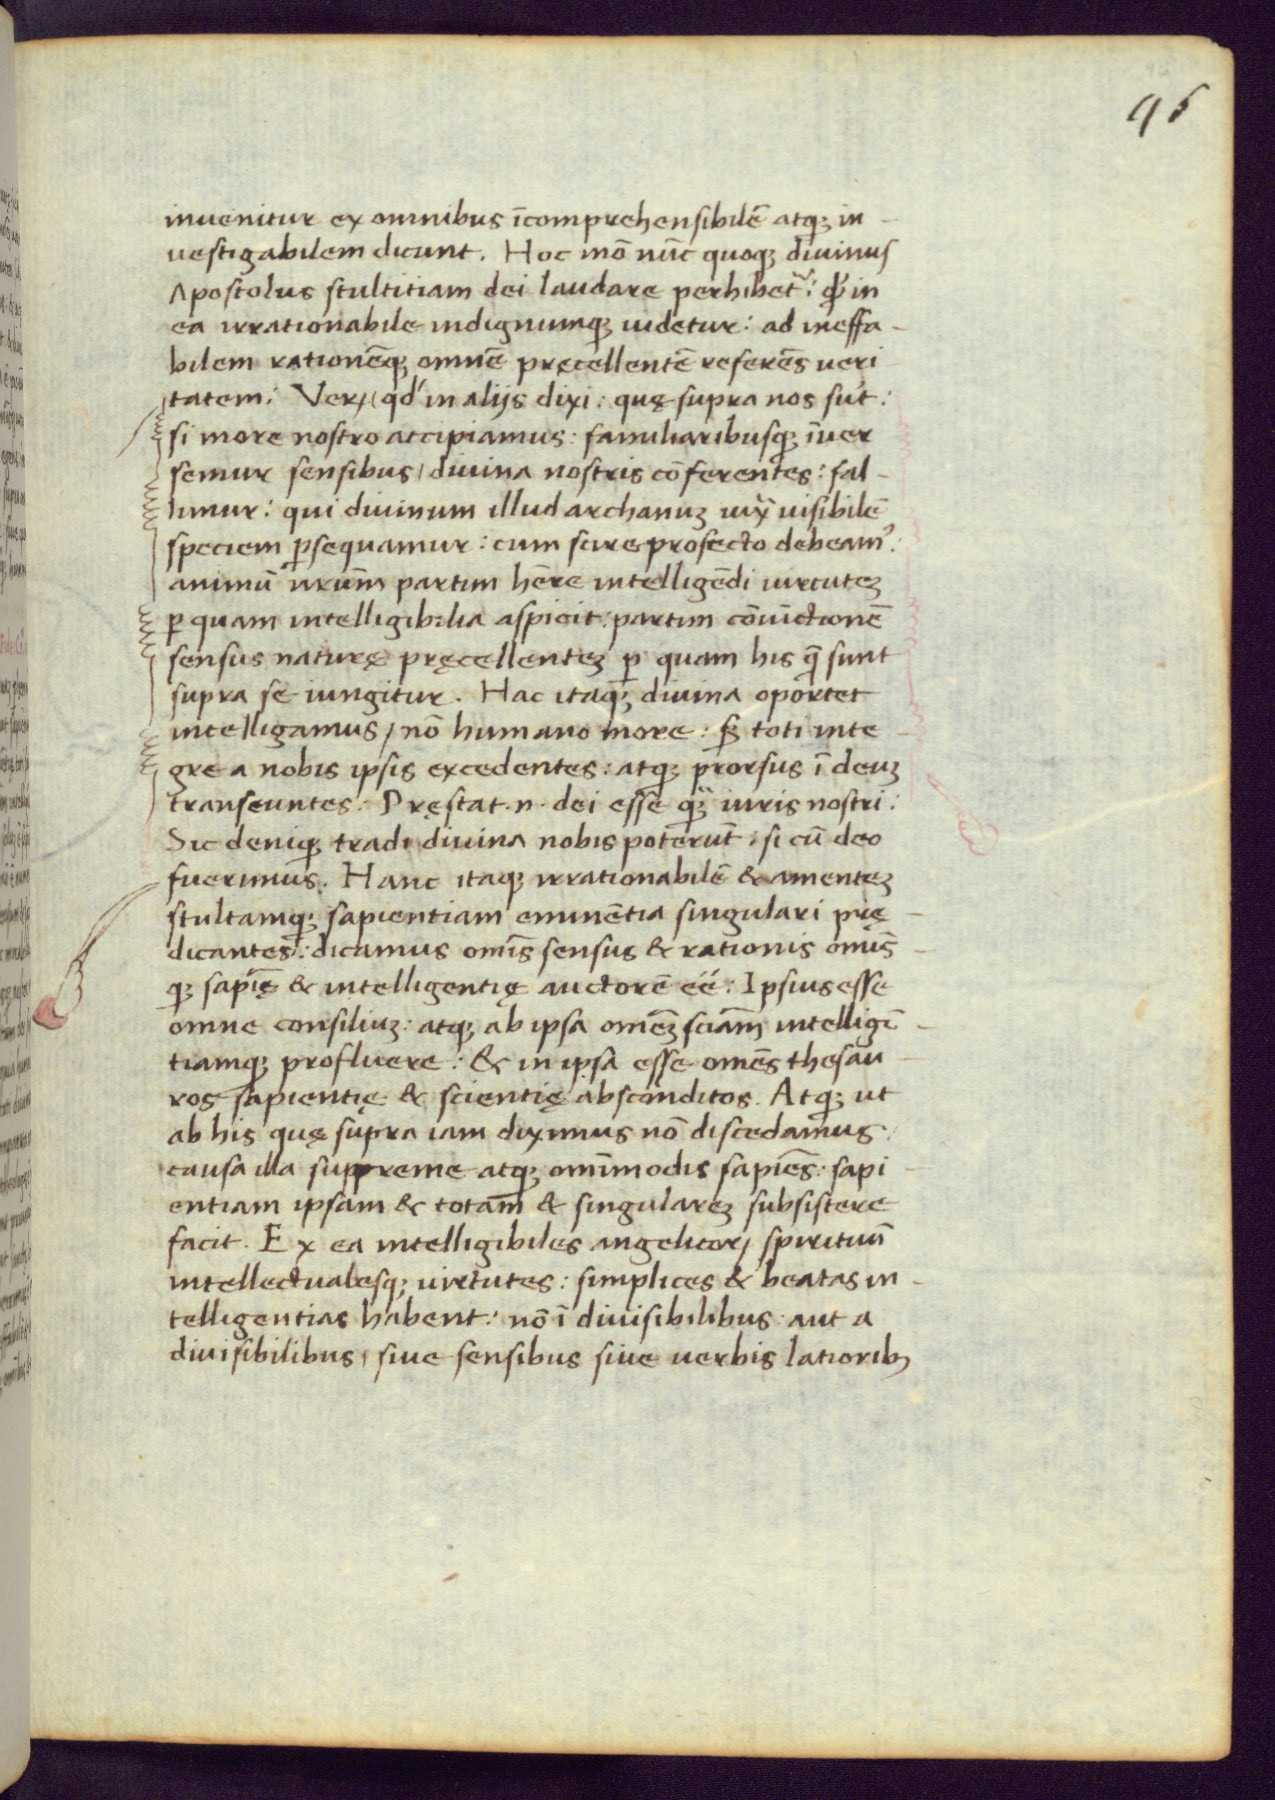 95
inuenitur ex omnibus īcomprehensibilē atqꝫ in-
uestigabilem dicunt. Hoc mō nūc quoqꝫ diuinus
Apostolus stultitiam dei laudare perhibet᷑: qđ in
ea irrationabile indignumqꝫ uidetur: ad ineffa-
bilem rationēqꝫ omnē pręcellentē referēs ueri
tatem: Veꝝ qđ in alijs dixi: quę supra nos sūt:
si more nostro accipiamus: familiaribusqꝫ īuer
semur sensibus / diuina nostris cōferentes: fal-
limur: qui diuinum illud archanuꝫ iuxͣ uisibilē
speciem ꝑsequamur: cum scire profecto debeamꝰ:
animū nr̄um partim hēre intelligēdi uirtuteꝫ
ꝑ quam intelligibilia aspicit: partim cōiūctionē
sensus naturę pręcellenteꝫ ꝑ quam his q̄ sunt
supra se iungitur. Hac itaqꝫ diuina oportet
intelligamus / nō humano more: sꝫ toti inte-
gre a nobis ipsis excedentes: atqꝫ prorsus ī deuꝫ
transeuntes: Pręstat .n. dei esse qͣꝫ iuris nostri:
Sic deniqꝫ tradi diuina nobis poterūt: si cū deo
fuerimus. Hanc itaqꝫ irrationabilē & amenteꝫ
stultamqꝫ sapientiam eminētia singulari prę-
dicantes: dicamus om̄is sensus & rationis om̄is-
qꝫ sapīę & intelligentię auctorē éé: Ipsius esse
omne consiliuꝫ: atqꝫ ab ipsa om̄eꝫ sciām intelligē-
tiamqꝫ profluere: & in ipsa esse om̄es thesau-
ros sapientię & scientię absconditos. Atqꝫ ut
ab his quę supra iam diximus nō discedamus:
causa illa suppreme atqꝫ omīmodis sapiēs: sapi-
entiam ipsam & totam & singulareꝫ subsistere
facit. Ex ea intelligibiles angelicoꝝ spirituū
intellectualesqꝫ uirtutes: simplices & beatas in-
telligentias habent: nō ī diuisibilibus aut a
diuisibilibus / siue sensibus siue uerbis latioribꝫ